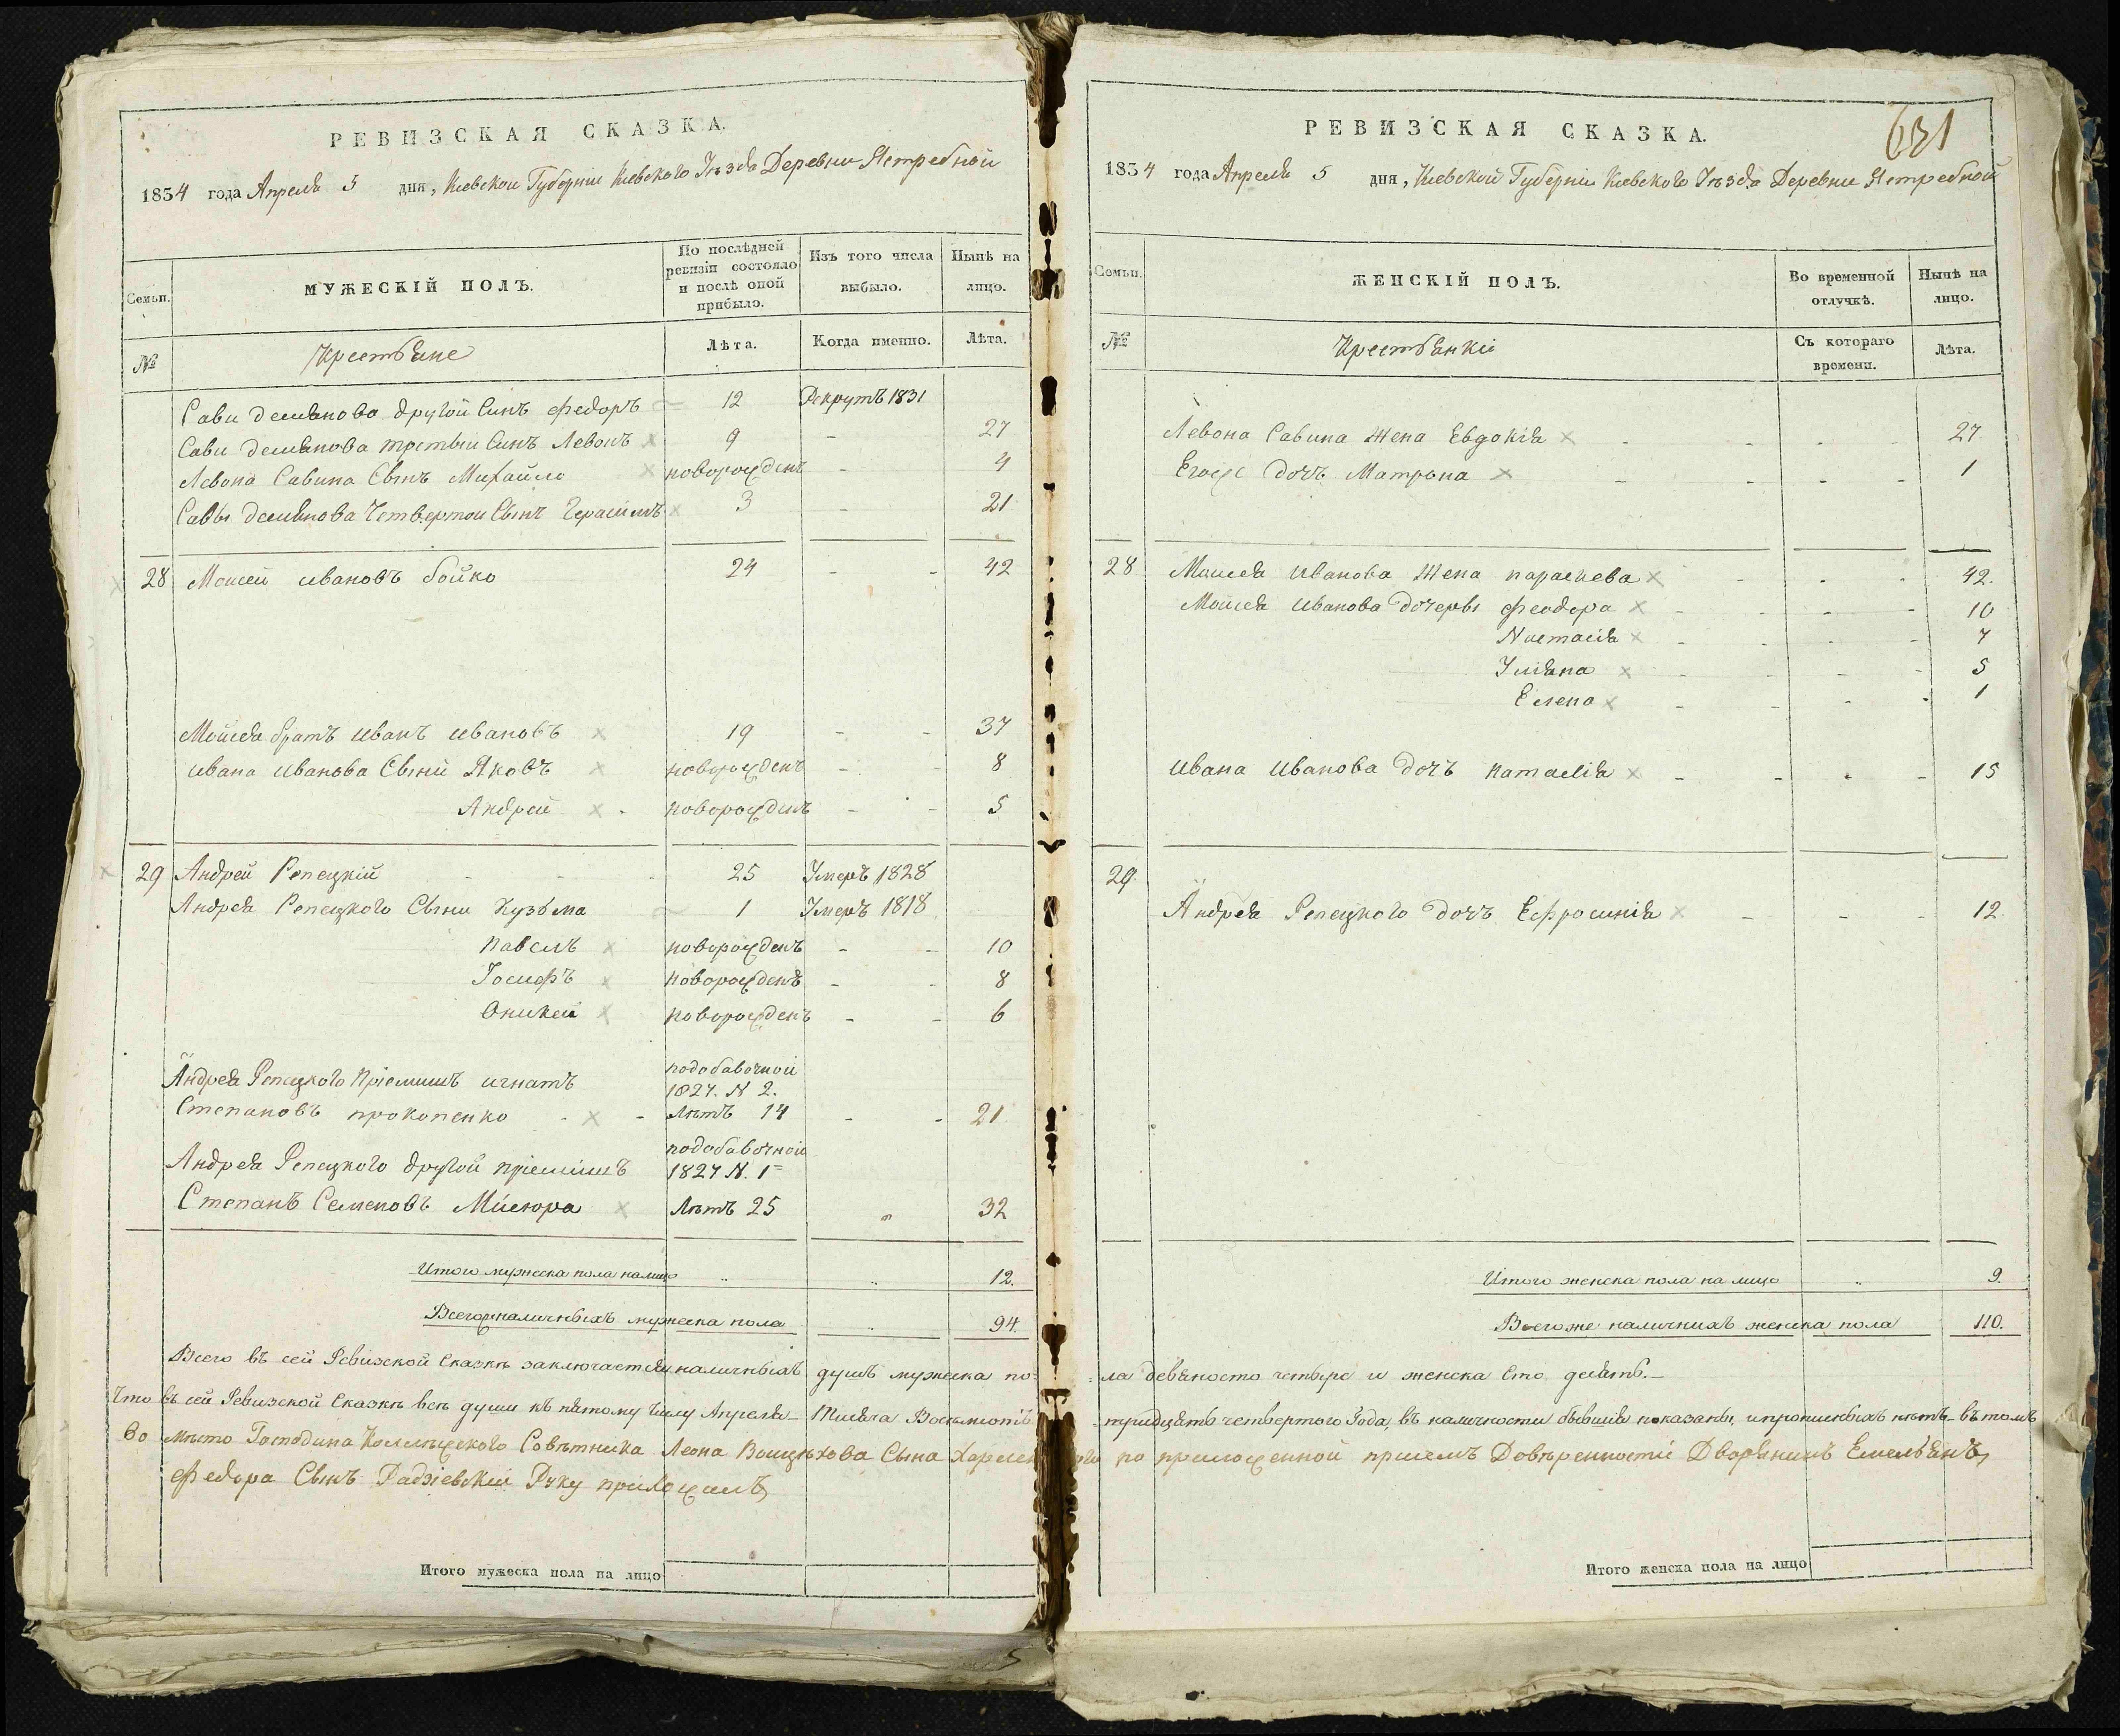 РЕВИЗСКАЯ СКАЗКА.
1834 года Апреля 5 дня, Киевской Губерніи Киевского Уѣзда Деревни Ястребной
Семьи.
МУЖЕСКІЙ ПОЛЪ.
По послѣдней ревизіи состояло и послѣ оной прибыло.
Изъ того числа выбыло.
Нынѣ на лицо.
№
Крестьяне
Лѣта.
Когда именно.
Лѣта.
Сави демянова другой Синъ федоръ 12 Рекрутъ 1831
Сави демянова третьи Синъ Левонъ 9 - 27
Левона Савина Сынъ Михайло новорожденъ - 4
Саввы демянова Четвертои Сынъ Герасимъ 3 - 21
28 Моисей ивановъ бойко 24 - - 42
Мойсея братъ иванъ ивановъ 19 - - 37
ивана иванова Сыни Яковъ новорожденъ - - 8
Андрей новорожденъ - - 5
29 Андрей Репецкій 25 Умеръ 1828
Андрея Репецкого Сыни Кузьма 1 Умеръ 1818
павелъ новорожденъ - - 10
Іосифъ новорожденъ - - 8
Оникеи новорожденъ - - 6
Андрея Репецкого пріемишъ игнатъ подобавочной 1827. N 2.
Степановъ прокопенко Лѣтъ 14 - - 21
Андрея Репецкого другой пріемишъ подобавочной 1827 N. 1
Степанъ Семеновъ Мисюра Лѣтъ 25 " 32
Итого мужеска пола налицо " " 12.
Всегожналичныхъ мужеска пола " 94.
Всего въ сей Ревизской Сказкѣ заключается наличныхъ душъ мужеска по=
Что въ сей Ревизской Сказкѣ всѣ души къ пятому числу Апреля Тисяча Восьмьсотъ
во мѣсто Господина Леона Сына
федора Сынъ Радзіевскій Руку приложилъ
Итого мужеска пола на лицо
РЕВИЗСКАЯ СКАЗКА.
631
1834 года Апреля 5 дня, Киевской Губерніи Киевского Уѣзда Деревни Ястребной
Семьи.
ЖЕНСКІЙ ПОЛЪ.
Во временной отлучкѣ.
Нынѣ на лицо.
№
Крестьянки
Съ котораго времени.
Лѣта.
Левона Савина Жена Евдокія - - - - 27
Егожъ дочъ Матрона - - - - 1
28 Моисея иванова Жена параскева - - - 42.
Моисея иванова дочеры феодора - - - 10
Настасія - - - - 7
Уляна - - - - 5
Елена - - - - 1
ивана иванова дочъ наталія - - - - 15
29.
Андрея Репецкого дочъ Ефросинія - - - 12.
Итого женска пола на лицо " 9.
Всегоже наличнихъ женска пола 110.
=ла девяносто четыре и женска Сто десять.-
-тридцать четвертого Года, въ наличности бывшія показаны, ипрописныхъ нѣтъ въ томъ
по приложенной присемъ Довѣренности Дворянинъ Емельянъ
Итого женска пола на лицо